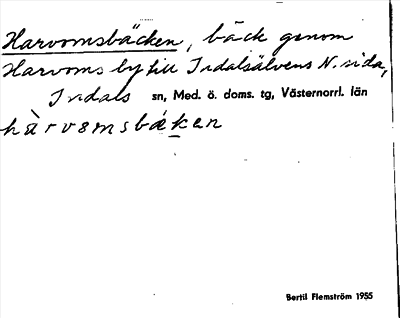 Harvomsbäcken, bäck genom
Harvoms by till Indalsälvens N. sida,
Indals sn, Med. ö. doms. tg, Västernorrl. län
hàrvomsbækən
Bertil Flemström 1955